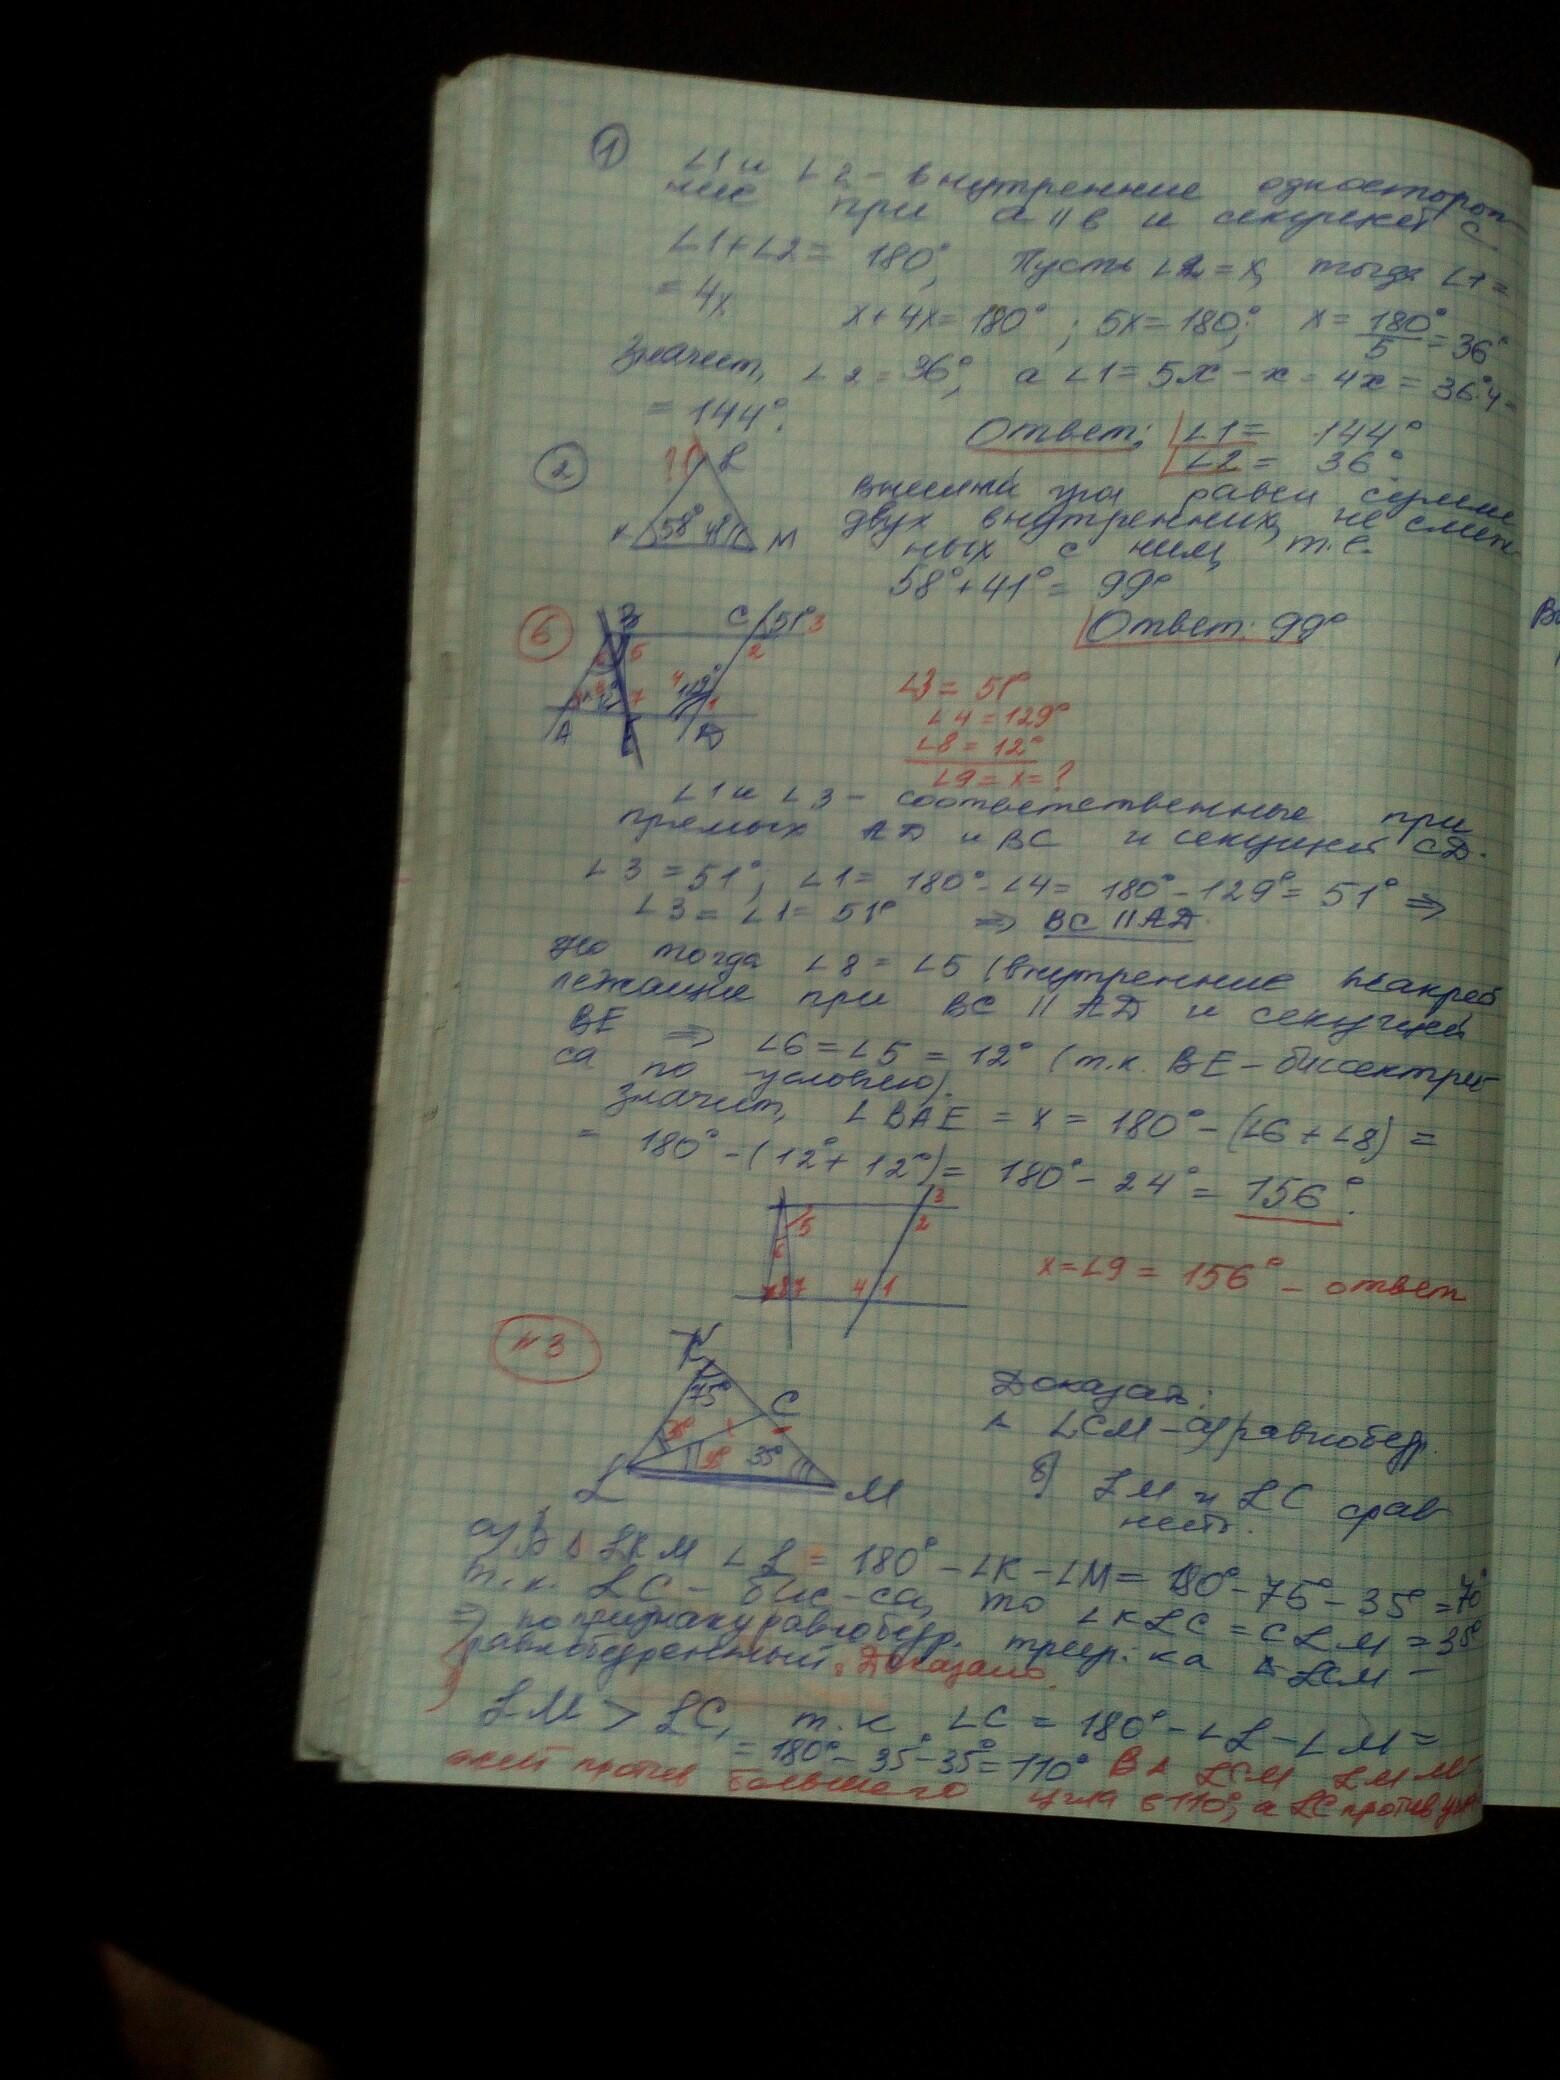 1
∠1 и ∠2 - внутренние односторон-
ние при a || в и секущей с
∠1+∠2 = 180°, Пусть ∠2 = x, тогда ∠1 =
= 4x x+4x=180°; 5x=180°; x = 180°/5 = 36°
Значит, ∠2 = 36°, а ∠1 = 5x - x = 4x = 36°·4 =
= 144°.
Ответ: ∠1 = 144°
∠2 = 36°.
2
? L
K 58° M
угол равен сумме
двух внутренних, не смеж-
ных с ним, т.е.
58° + 41° = 99°
Ответ: 99°
6
B C 51° 3
6 5 2
12° 7 4 1
A E D
∠3 = 51°
∠4 = 129°
∠8 = 12°
∠9 = x = ?
∠1 и ∠3 - соответственные при
прямых AD и BC и секущей CD.
∠3 = 51°, ∠1 = 180° - ∠4 = 180° - 129° = 51° ⇒
∠3 = ∠1 = 51° ⇒ BC || AD.
Но тогда ∠8 = ∠5 (внутренние накрест
лежащие при BC || AD и секущей
BE ⇒ ∠6 = ∠5 = 12° (т.к. BE - биссектри-
са по условию).
Значит, ∠BAE = x = 180° - (∠6 + ∠8) =
= 180° - (12° + 12°) = 180° - 24° = 156°.
5 3
6 2
x 8 7 4 1
x = ∠9 = 156° - ответ
№3
K
75° C
35° 35°
L M
Доказать:
∆ LCM - равнобедр.
б) LM и LC срав
нить.
а) В ∆ LKM ∠L = 180° - ∠K - ∠M = 180° - 75° - 35° = 70°
т.к. LC - бис-са, то ∠KLC = CLM = 35°
⇒ по признаку равнобедр. треуг-ка ∆ LCM -
равнобедренный. Доказано.
LM > LC, т.к ∠C = 180° - ∠L - ∠M =
= 180° - 35° - 35° = 110° В ∆ LCM LM
против большего угла в 110°, а LC против